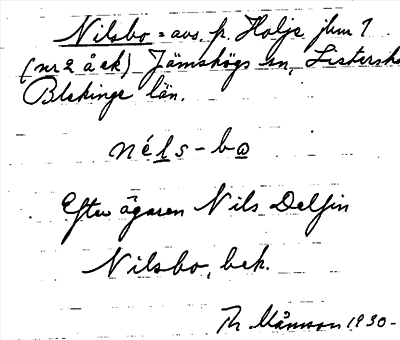 Nilsbo = avs. fr. Holje jbm 1
(nr 2 å ek) Jämshögs sn, Listers h
Blekinge län.
néls-bo
Efter ägaren Nils Delfin
Nilsbo, bek.
Månsson 1930-